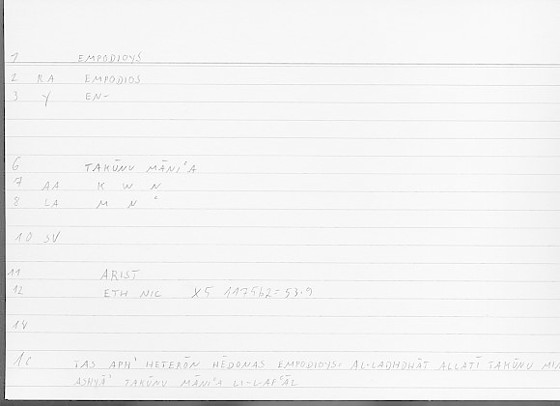 1 EMPODIOYS
2 RA EMPODIOS
3 Y EN-
6 TAKŪNU MĀNIʿA
7 AA K W N
8 EA M N ʿ
10 SV
11 ARIST
12 ETH NIC X5 1175b2 = 53.9
14
TAS APH' HETERŌN HĒDONAS EMPODIOYS. AL-LADHDHĀT ALLATĪ TAKŪNU MIN
ASHYĀʾ TAKŪNU MĀNIʿA LI-L-AFʿĀL